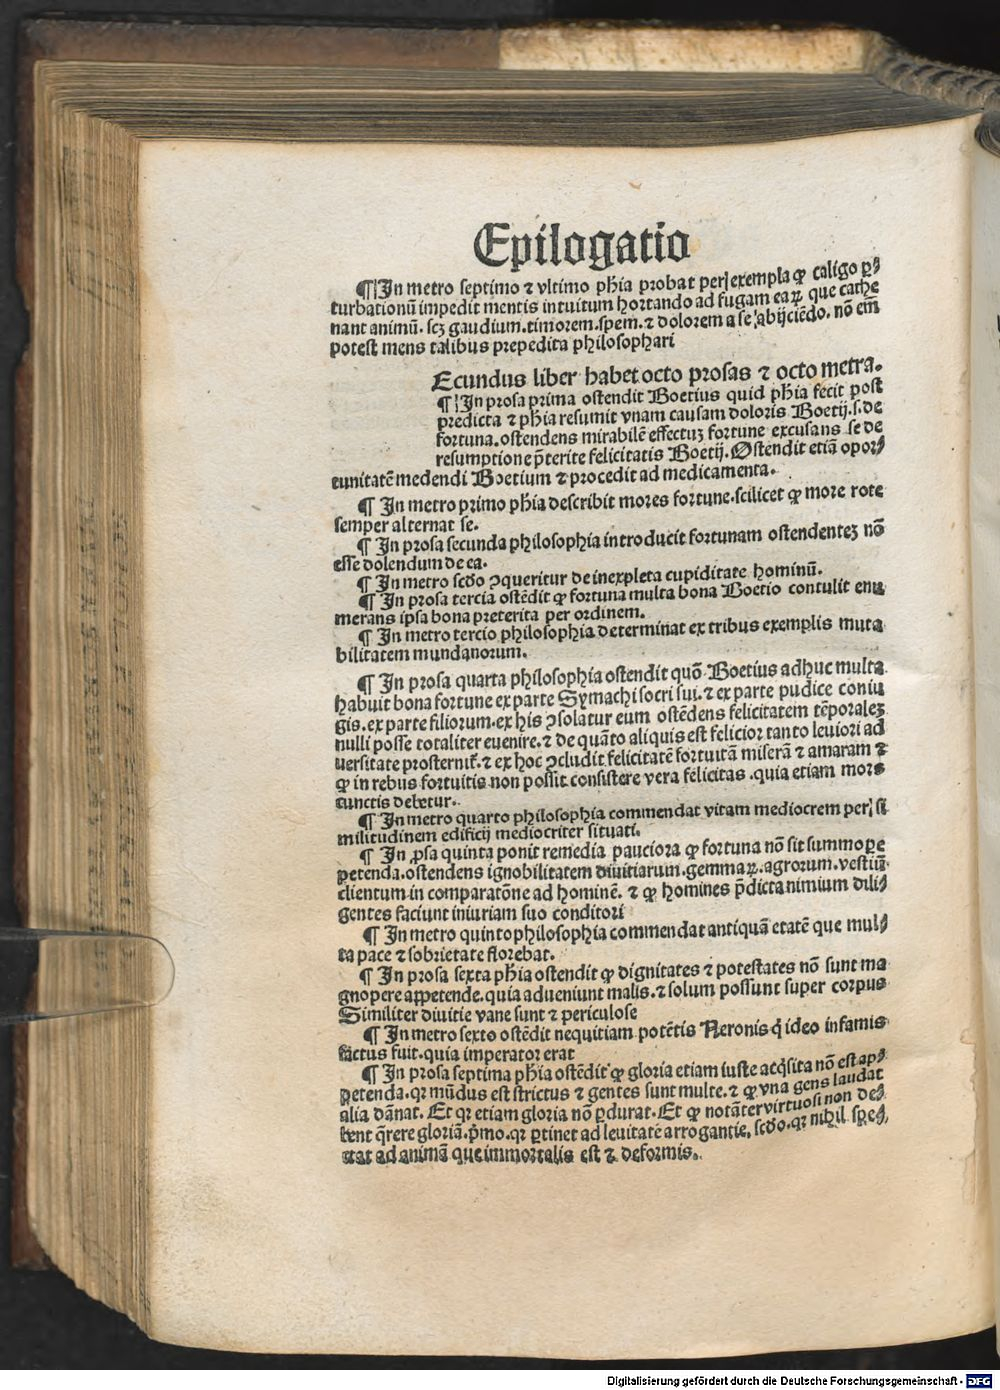 Epilogatio
¶ In metro septimo ⁊ vltimo ph̄ia probat per exempla ꝙ caligo ꝑ⸗
turbationū impedit mentis intuitum hortando ad fugam eaꝝ que cathe
nant animū. scꝫ gaudium. timorem. spem. ⁊ dolorem a se abijciēdo. nō em̄
potest mens talibus prepedita philosophari
Ecundus liber habet octo prosas ⁊ octo metra.
¶ In prosa prima ostendit Boetius quid ph̄ia fecit post
predicta ⁊ ph̄ia resumit vnam causam doloris Boetij. s. de
fortuna. ostendens mirabilē effectuꝫ fortune excusans se de
resumptione p̄terite felicitatis Boetij. Ostendit etiā opor⸗
tunitatē medendi Boetium ⁊ procedit ad medicamenta.
¶ In metro primo ph̄ia describit mores fortune. scilicet ꝙ more rote
semper alternat se.
¶ In prosa secunda philosophia introducit fortunam ostendenteꝫ nō
esse dolendum de ea.
¶ In metro scdo ꝯqueritur de inexpleta cupiditate hominū.
¶ In prosa tercia ostēdit ꝙ fortuna multa bona Boetio contulit enu
merans ipsa bona preterita per ordinem.
¶ In metro tercio philosophia determinat ex tribus exemplis muta
bilitatem mundanorum.
¶ In prosa quarta philosophia ostendit quō Boetius adhuc multa
habuit bona fortune ex parte Symachi socri sui. ⁊ ex parte pudice coniu
gis. ex parte filiorum. ex his ꝯsolatur eum ostēdens felicitatem tēporaleꝫ
nulli posse totaliter euenire. ⁊ de quāto aliquis est felicior tanto leuiori ad
uersitate prosternit᷑. ⁊ ex hoc ꝯcludit felicitatē fortuitā miserā ⁊ amaram ⁊
ꝙ in rebus fortuitis non possit consistere vera felicitas . quia etiam mors
cunctis debetur.
¶ In metro quarto philosophia commendat vitam mediocrem per si
militudinem edificij mediocriter situati.
¶ In ꝓsa quinta ponit remedia pauciora ꝙ fortuna nō sit summope
ꝑetenda. ostendens ignobilitatem diuitiarum. gemmaꝝ. agrorum. vestiū.
clientum in comparatōne ad hominē. ⁊ ꝙ homines p̄dicta nimium dili⸗
gentes faciunt iniuriam suo conditori
¶ In metro quinto philosophia commendat antiquā etatē que mul⸗
ta pace ⁊ sobrietate florebat.
¶ In prosa sexta ph̄ia ostendit ꝙ dignitates ⁊ potestates nō sunt ma
gnopere appetende. quia adueniunt malis. ⁊ solum possunt super corpus
Similiter diuitie vane sunt ⁊ periculose
¶ In metro sexto ostēdit nequitiam potētis Neronis q̇ ideo infamis
factus fuit. quia imperator erat
¶ In prosa septima ph̄ia ostēdit ꝙ gloria etiam iuste acq̇sita nō est ap⸗
petenda. qr mūdus est strictus ⁊ gentes sunt multe. ⁊ ꝙ vna gens laudat
alia dānat. Et qr etiam gloria nō ꝑdurat. Et ꝙ notāter virtuosi non de⸗
bent q̄rere gloriā. p̄mo. qr ꝑtinet ad leuitatē arrogantie. scdo. qr nihil spe⸗
ctat ad animā que immortalis est ⁊ deformis.
Digitalisierung gefördert durch die Deutsche Forschungsgemeinschaft - DFG